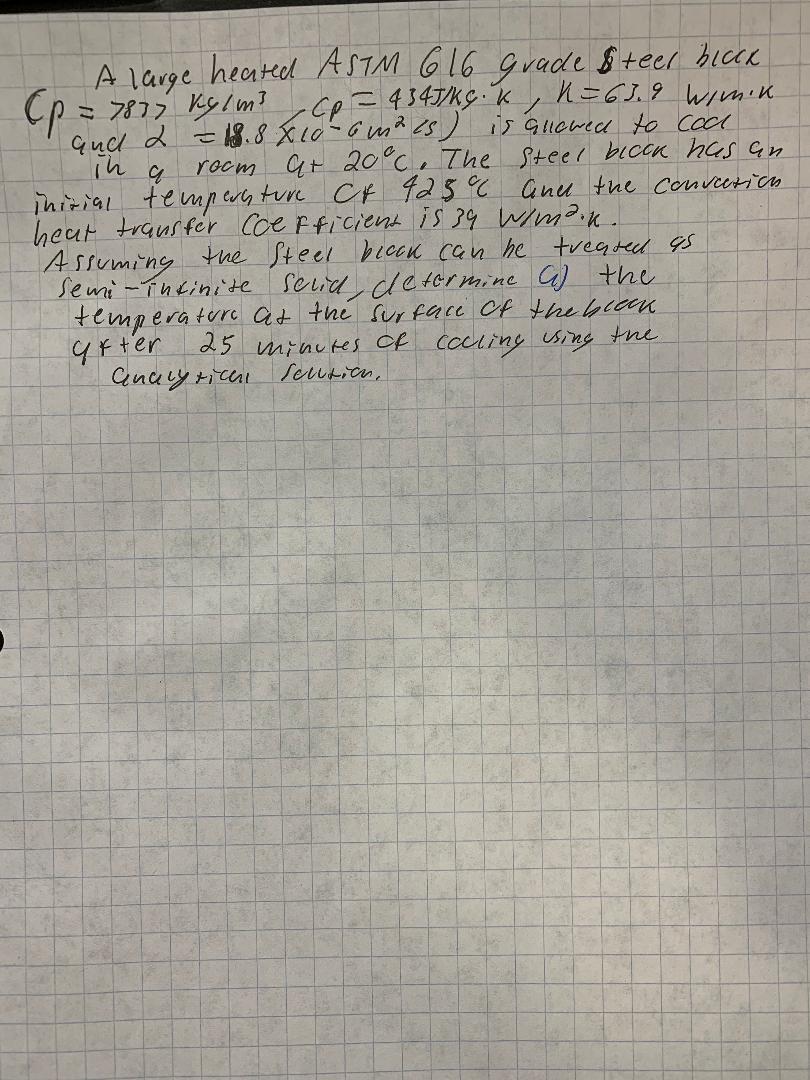 A large heated ASTM G16 grade steel block
(ρ = 7837 Kg/m³, Cp = 434J/Kg·K, K=63.9 W/m·K
and α = 18.8 x10-6m²/s) is allowed to cool
in a room at 20°C. The steel block has an
initial temperature of 425°C and the convection
heat transfer coefficient is 39 W/m²·K.
Assuming the steel block can be treated as
semi-infinite solid, determine a) the
temperature at the surface of the block
after 25 minutes of cooling using the
analytical solution.